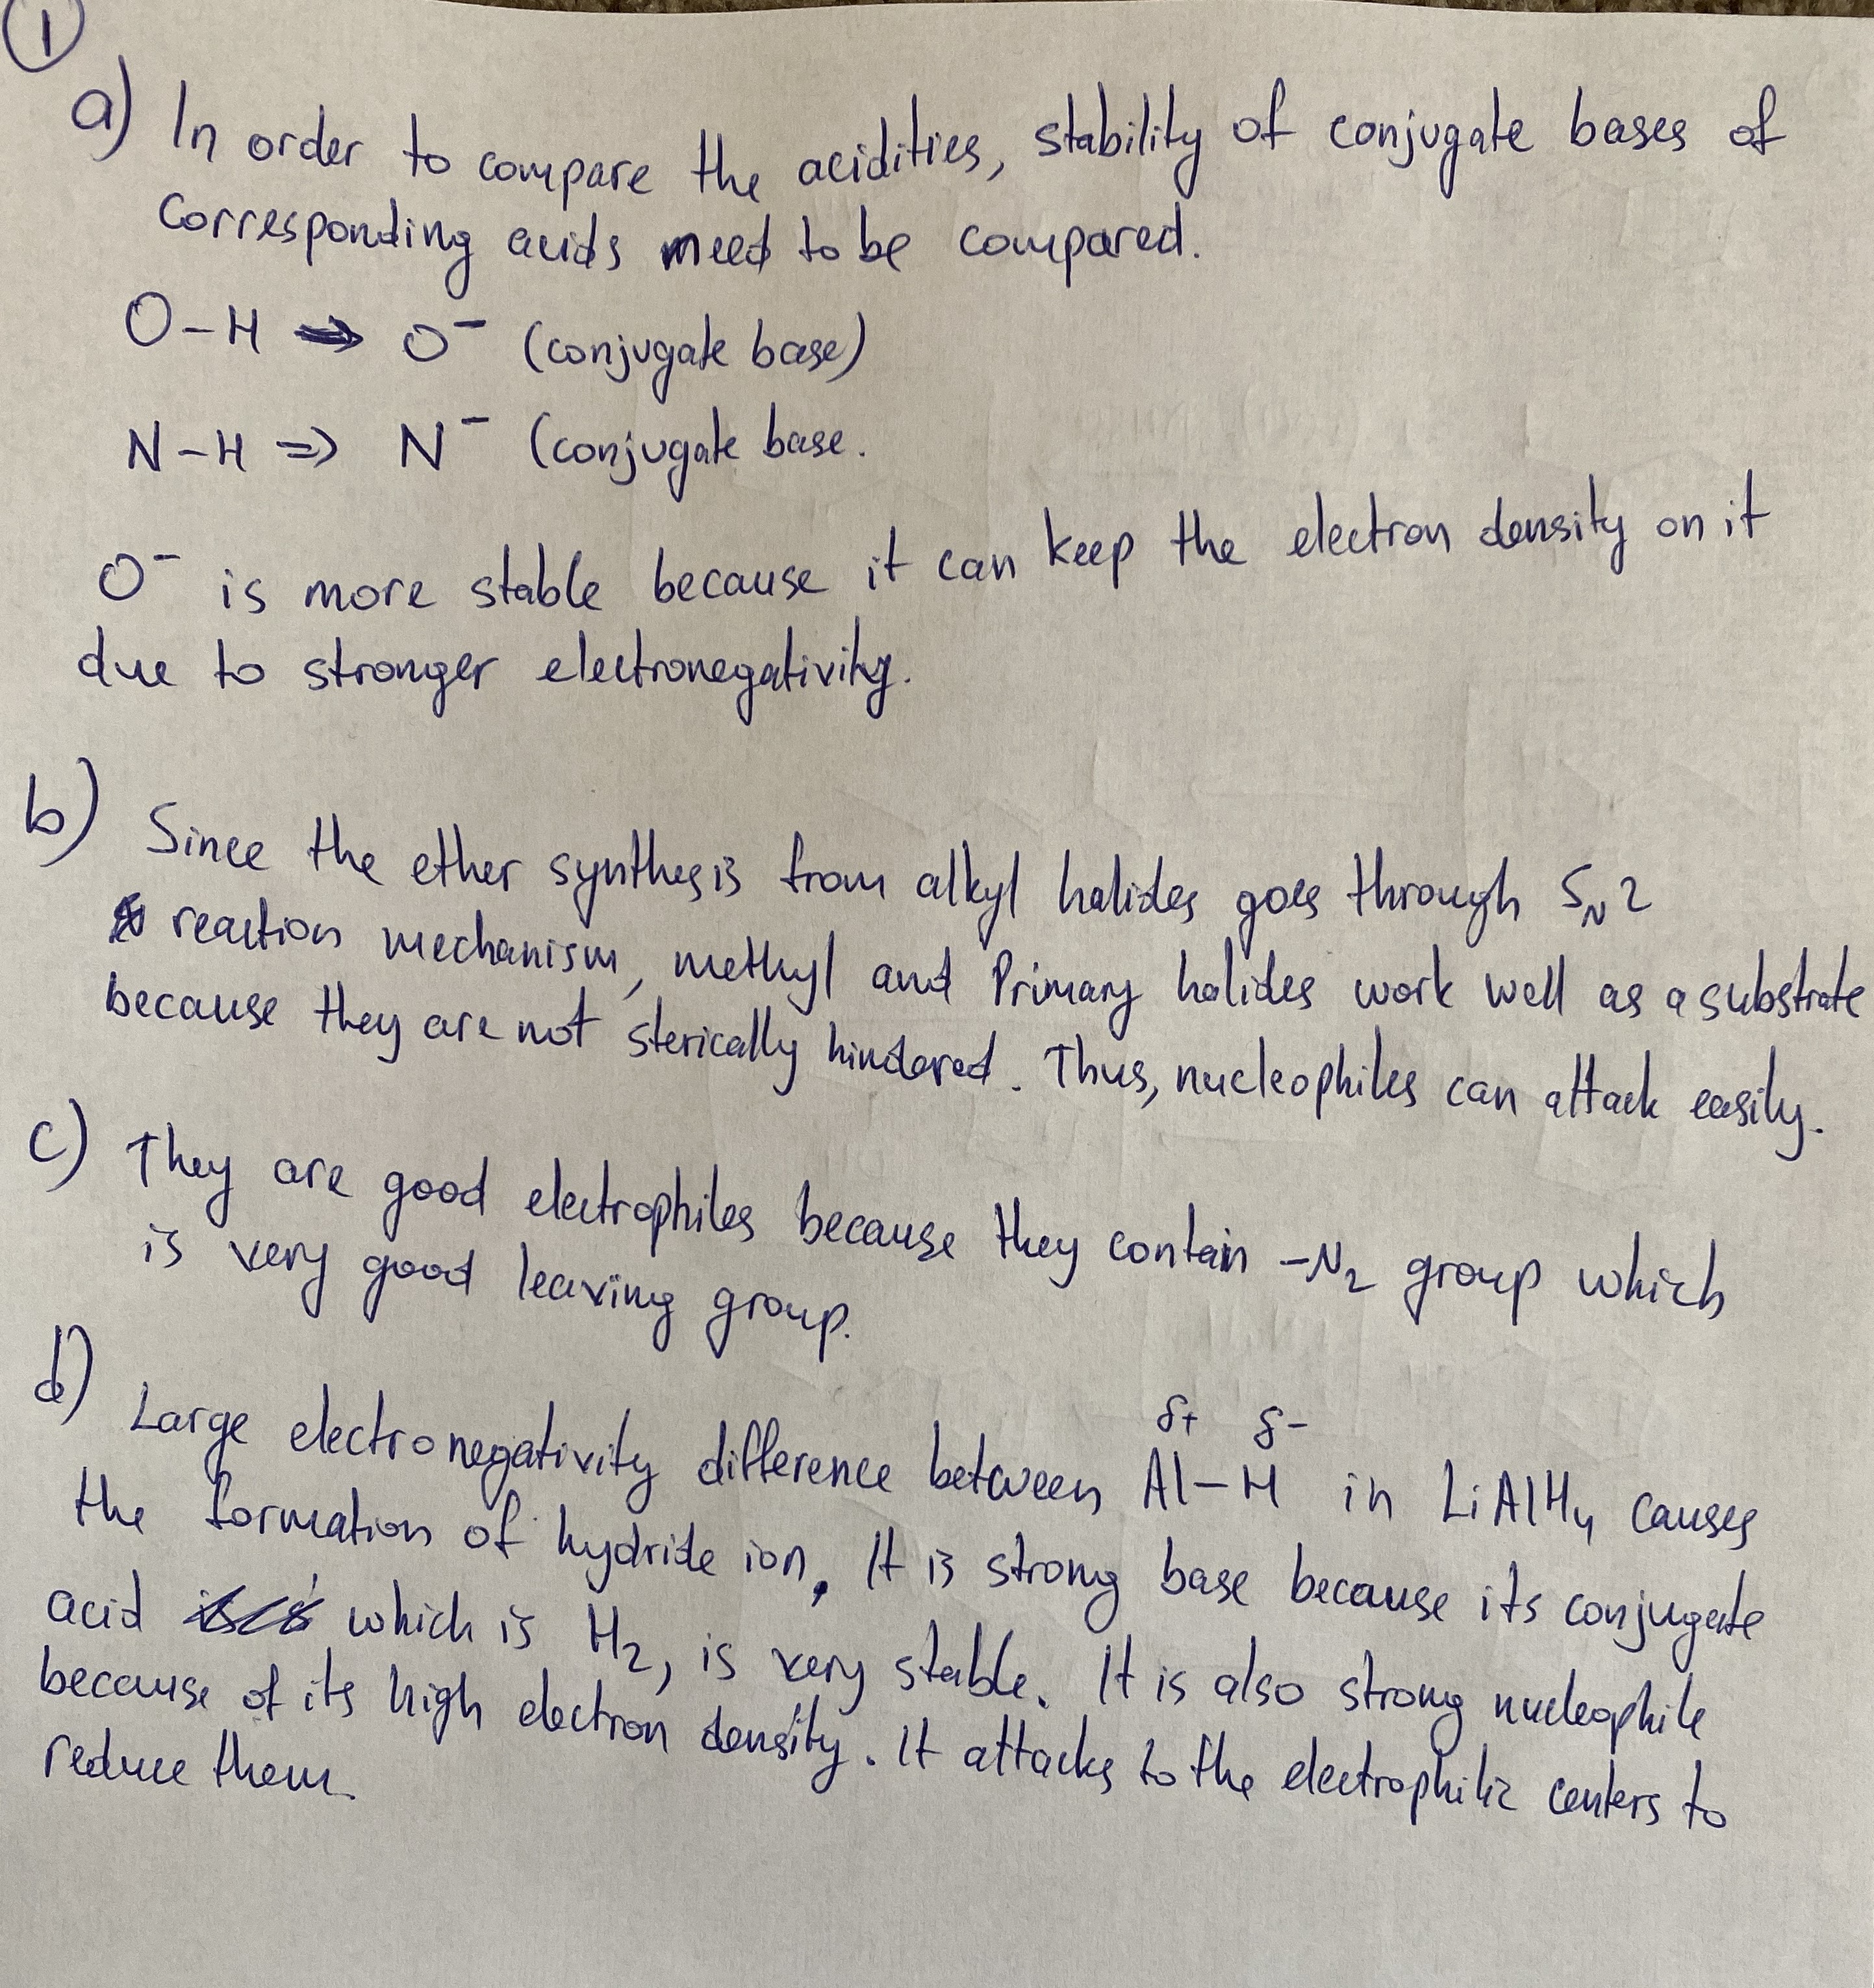 1
a) In order to compare the acidities, stability of conjugate bases of
corresponding acids need to be compared.
O-H ⇒ O⁻ (conjugate base)
N-H ⇒ N⁻ (conjugate base.
O⁻ is more stable because it can keep the electron density on it
due to stronger electronegativity.
b) Since the ether synthesis from alkyl halides goes through SN2
reaction mechanism, methyl and Primary halides work well as a substrate
because they are not sterically hindered. Thus, nucleophiles can attack easily.
c) They are good electrophiles because they contain -N₂ group which
is very good leaving group.
δ+ δ-
d) Large electronegativity difference between Al-H in LiAlH₄ causes
the formation of hydride ion. It is strong base because its conjugate
acid which is H₂, is very stable. It is also strong nucleophile
because of its high electron density. It attacks to the electrophilic centers to
reduce them.